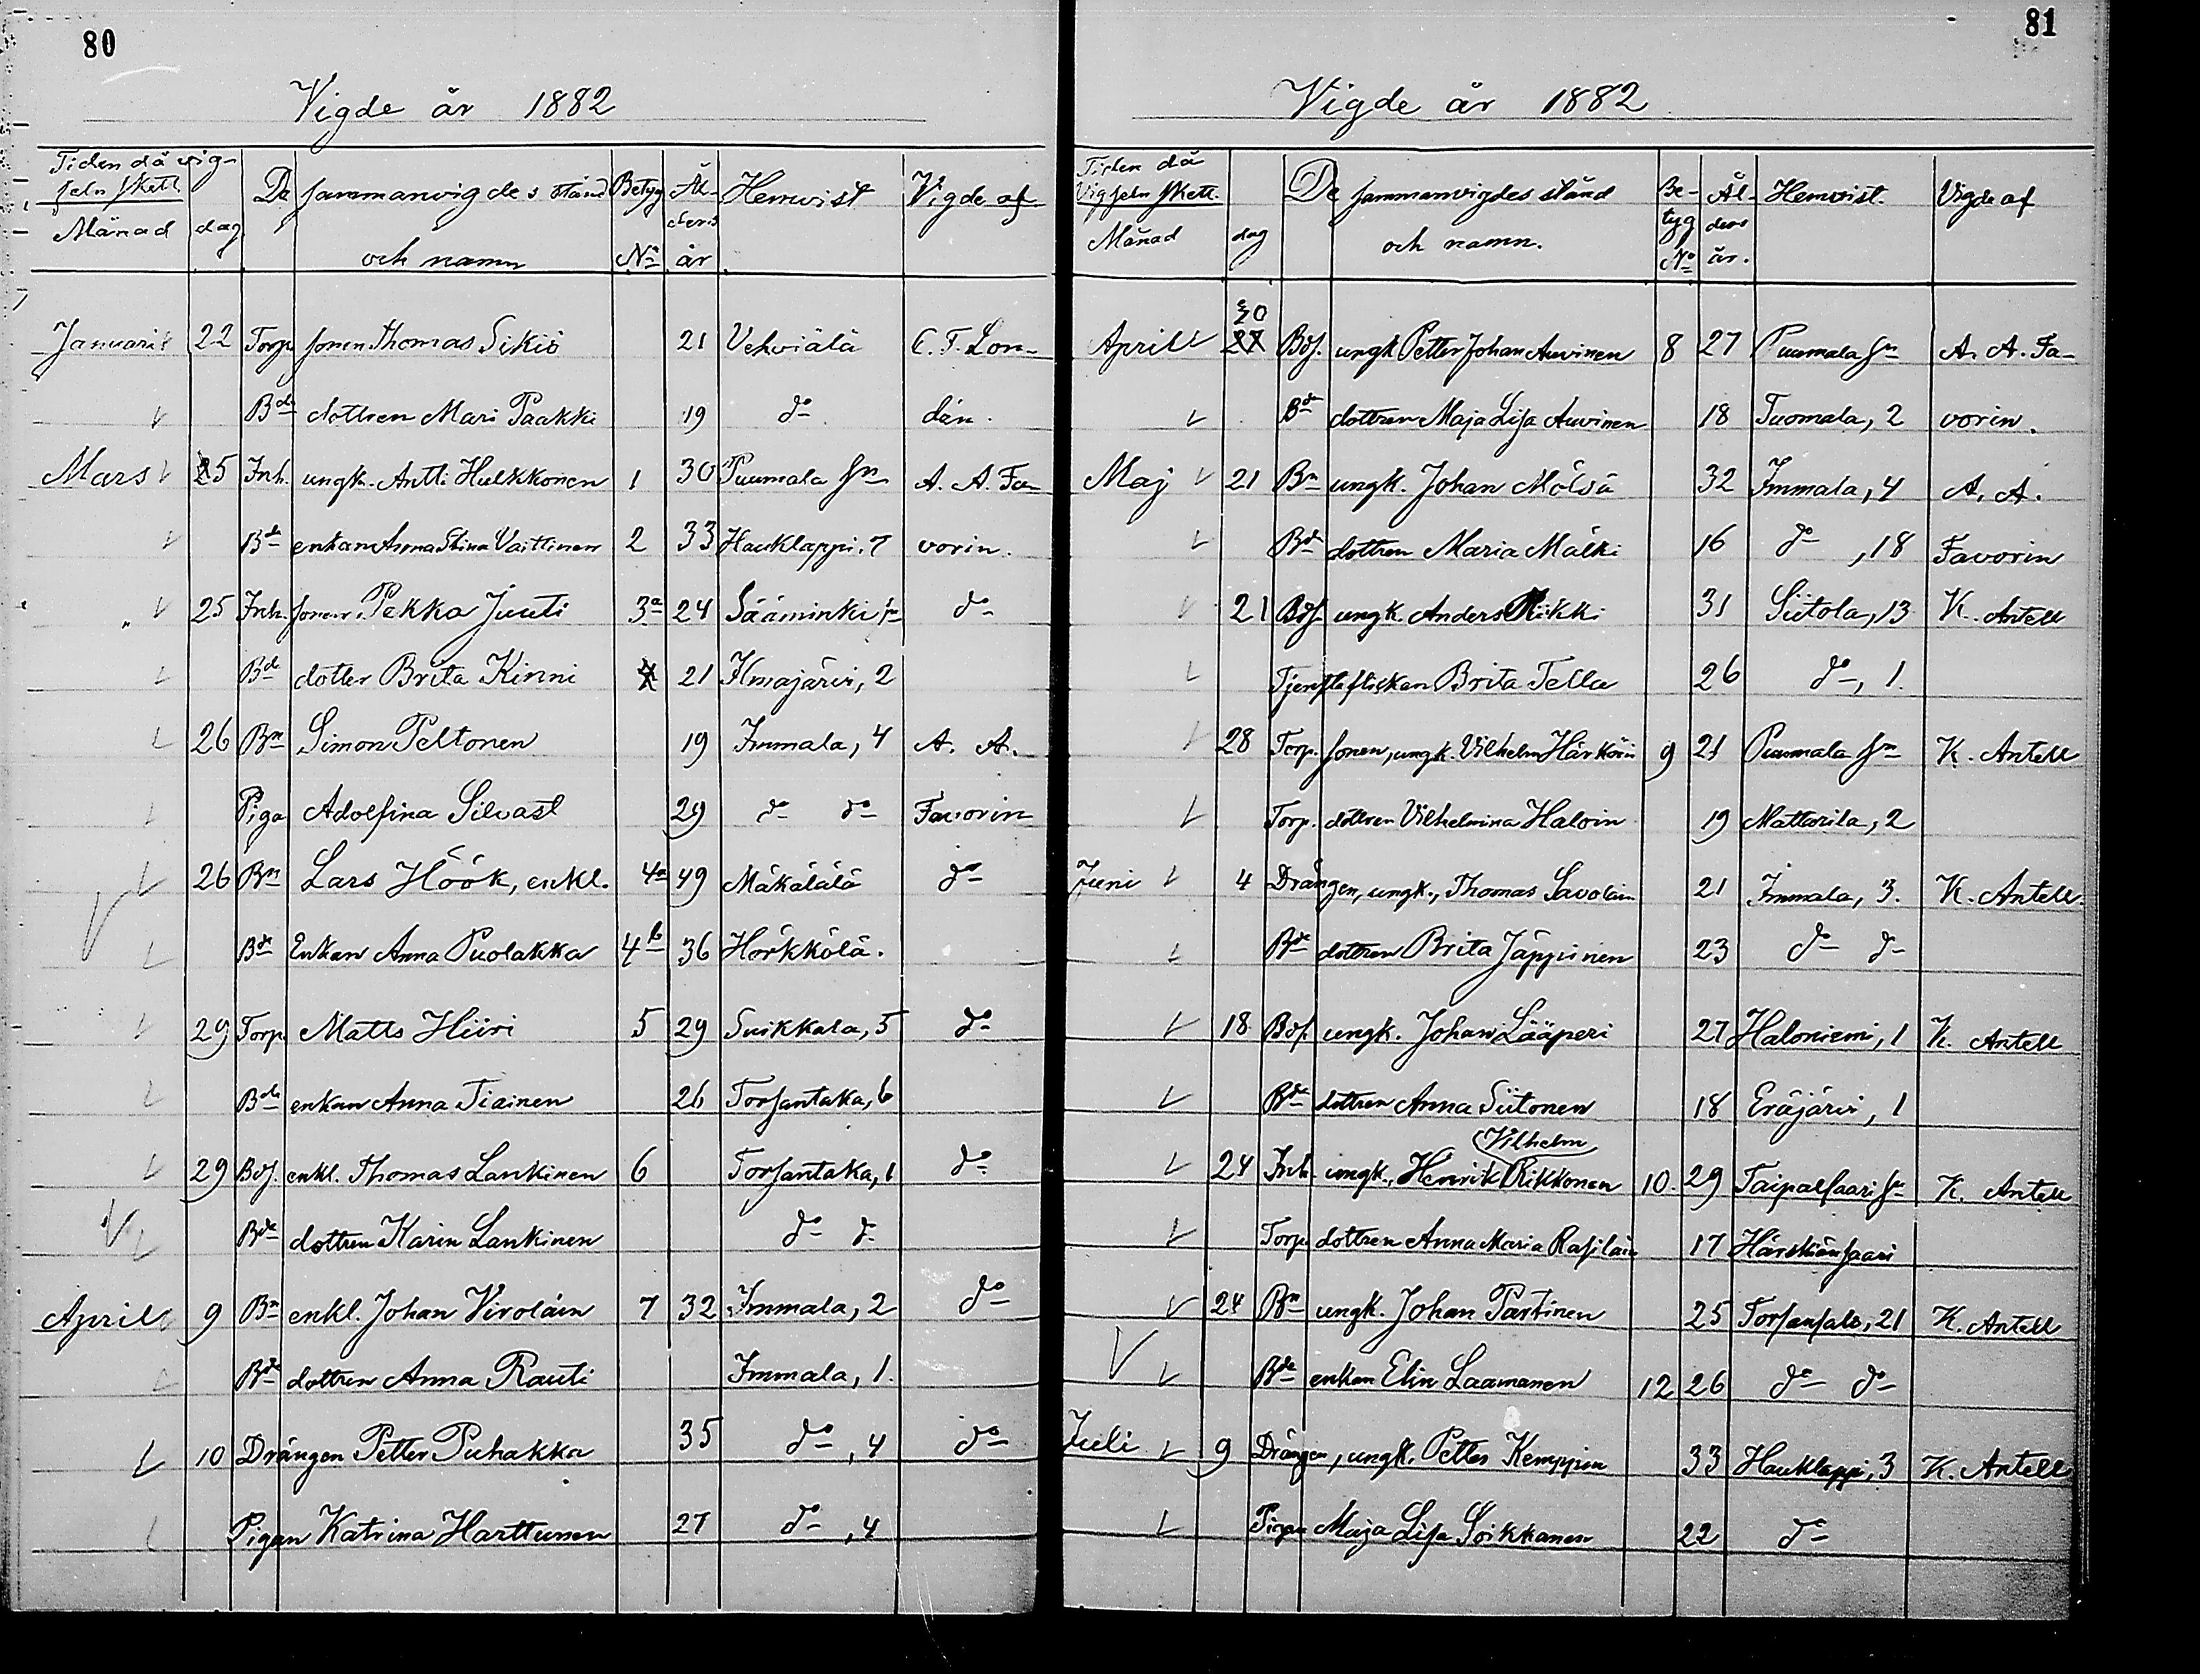 80
Vigde år 1882
Tiden då vig-
seln skett
Månad dag
De sammanvigdes stånd
och namn
Betyg
No
Ål-
ders
år
Hemvist
Vigde af
Januari 22 Torp. sonen Thomas Sikiö 21 Vehviälä C. F. Lon-
Bde dottren Mari Paakki 19 do dén.
Mars 5 Inh. ungk. Antti Hulkkonen 1 30 Puumala sn A. A. Fa-
Bde enkan Anna Stina Vaittinen 2 33 Hauklappi, 7 vorin.
" 25 Inh. sonen Pekka Juuti 3a 24 Sääminki sn do
Bde dotter Brita Kinni 4 21 Ilmajärvi, 2
26 Bn Simon Peltonen 19 Immala, 4 A. A.
Piga Adolfina Silvast 29 do do Favorin
26 Bn Lars Höök, enkl. 4a 49 Mäkälälä do
Bde Enkan Anna Puolakka 4b 36 Hörkkölä.
29 Torp. Matts Hiiri 5 29 Suikkala, 5 do
Bde enkan Anna Tiainen 26 Torsantaka, 6
29 Bds. enkl. Thomas Lankinen 6 Torsantaka, 6 do
Bde dottren Karin Lankinen do do
April 9 Bn enkl. Johan Virolain 7 32 Immala, 2 do
Bde dottren Anna Rauti Immala, 1.
10 Drängen Petter Puhakka 35 do, 4 do
Pigan Katrina Harttunen 27 do, 4
81
Vigde år 1882
Tiden då
Vigseln skett.
Månad dag
De sammanvigdes stånd
och namn.
Be-
tyg
No
Ål-
ders
år.
Hemvist.
Vigde af
30
April 27 Bds. ungk Petter Johan Auvinen 8 27 Puumala sn A. A. Fa-
Bde dottren Maja Lisa Auvinen 18 Tuomala, 2 vorin.
Maj 21 Bn ungk. Johan Mölsä 32 Immala, 4 A. A.
Bde dottren Maria Mälki 16 do, 18 Favorin
21 Bds. ungk. Anders Rikki 31 Siitola, 13 K. Antell
Tjensteflickan Brita Tella 26 do, 1.
28 Torp. sonen, ungk. Vilhelm Härkön 9 21 Puumala sn K. Antell
Torp. dottren Vilhelmina Haloin 19 Mattarila, 2
Juni 4 Drängen, ungk., Thomas Savolain 21 Immala, 3. K. Antell
Bde dottren Brita Jäppinen 23 do do
18 Bds. ungk. Johan Lääperi 27 Haloniemi, 1 K. Antell
Bde dottren Anna Siitonen 18 Eräjärvi, 1
Vilhelm
24 Inh. ungk., Henrik Rikkonen 10. 29 Taipalsaari sn K. Antell
Torp. dottren Anna Maria Rasilain 17 Härskiänsaari
24 Bn ungk. Johan Partinen 25 Torsansalo, 21 K. Antell
Bde enkan Elin Laamanen 12 26 do do
Juli 9 Drängen, ungk. Petter Kemppin 33 Hauklappi, 3 K. Antell
Pigan Maja Lisa Soikkanen 22 do